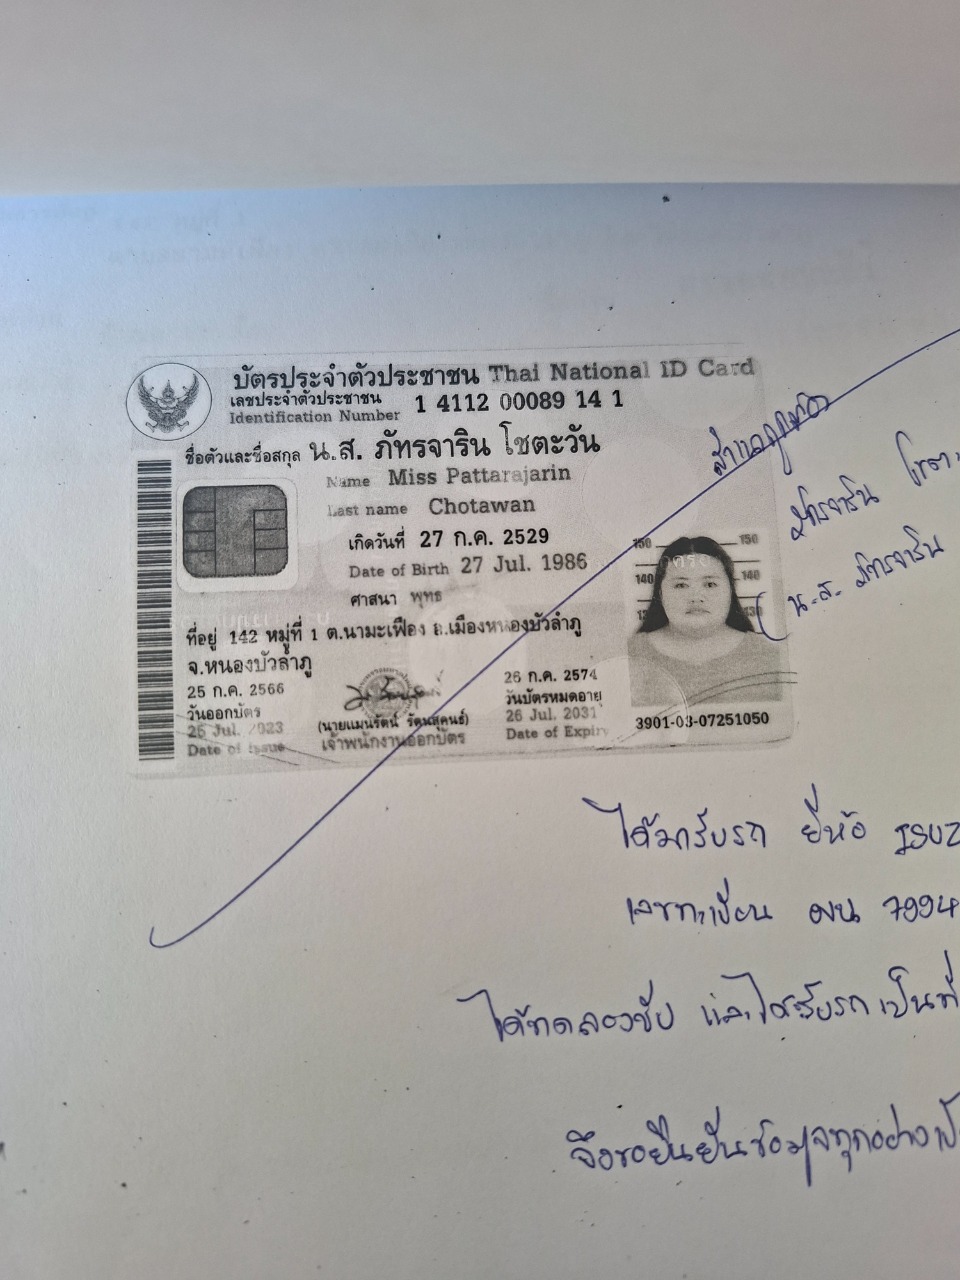 บัตรประจำตัวประชาชน Thai National ID Card
เลขประจำตัวประชาชน
Identification Number 1 4112 00089 14 1
ชื่อตัวและชื่อสกุล น.ส. ภัทรจาริน โชตะวัน
Name Miss Pattarajarin
Last name Chotawan
เกิดวันที่ 27 ก.ค. 2529
Date of Birth 27 Jul. 1986
ศาสนา พุทธ
ที่อยู่ 142 หมู่ที่ 1 ต.นามะเฟือง อ.เมืองหนองบัวลำภู
จ.หนองบัวลำภู
25 ก.ค. 2566
วันออกบัตร
26 Jul. 2023
Date of Issue
(นายแมนรัตน์ รัตนสุคนธ์)
เจ้าพนักงานออกบัตร
26 ก.ค. 2574
วันบัตรหมดอายุ
26 Jul. 2031
Date of Expiry
150 150
140 140
130
3901-03-07251050
สำเนาถูกต้อง
ภัทรจาริน
(น.ส. ภัทรจาริน
ได้มารับรถ ยี่ห้อ ISUZ
เลขทะเบียน 7994
ได้ทดลองขับ และได้รับรถเป็นที่
จึงขอยืนยันข้อมูลทุกอย่าง